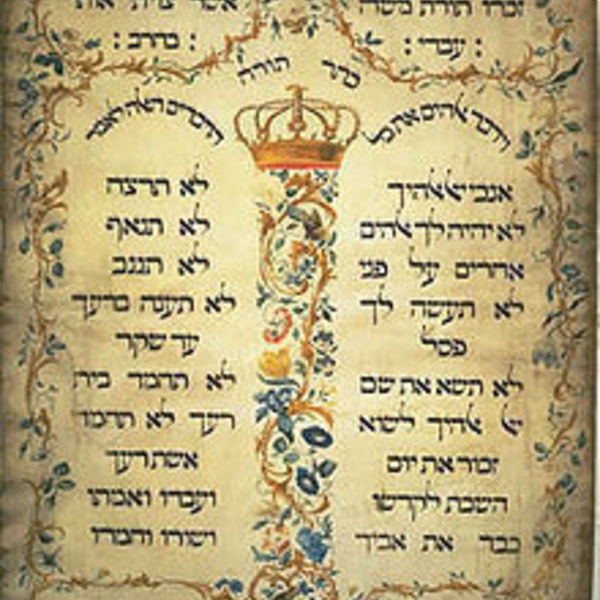 זכרו תורת משה
: עבדי :
אשר צויתי את
: בחרב :
כתר תורה
וידבר אלהים את כל
הדברים האלה לאמר
אנכי יי אלהיך
לא יהיה לך אלהים
אחרים על פני
לא תעשה לך
פסל
לא תשא את שם
יי אלהיך לשוא
זכור את יום
השבת לקדשו
כבד את אביך
לא תרצח
לא תנאף
לא תגנב
לא תענה ברעך
עד שקר
לא תחמד בית
רעך לא תחמד
אשת רעך
ועבדו ואמתו
ושורו וחמרו